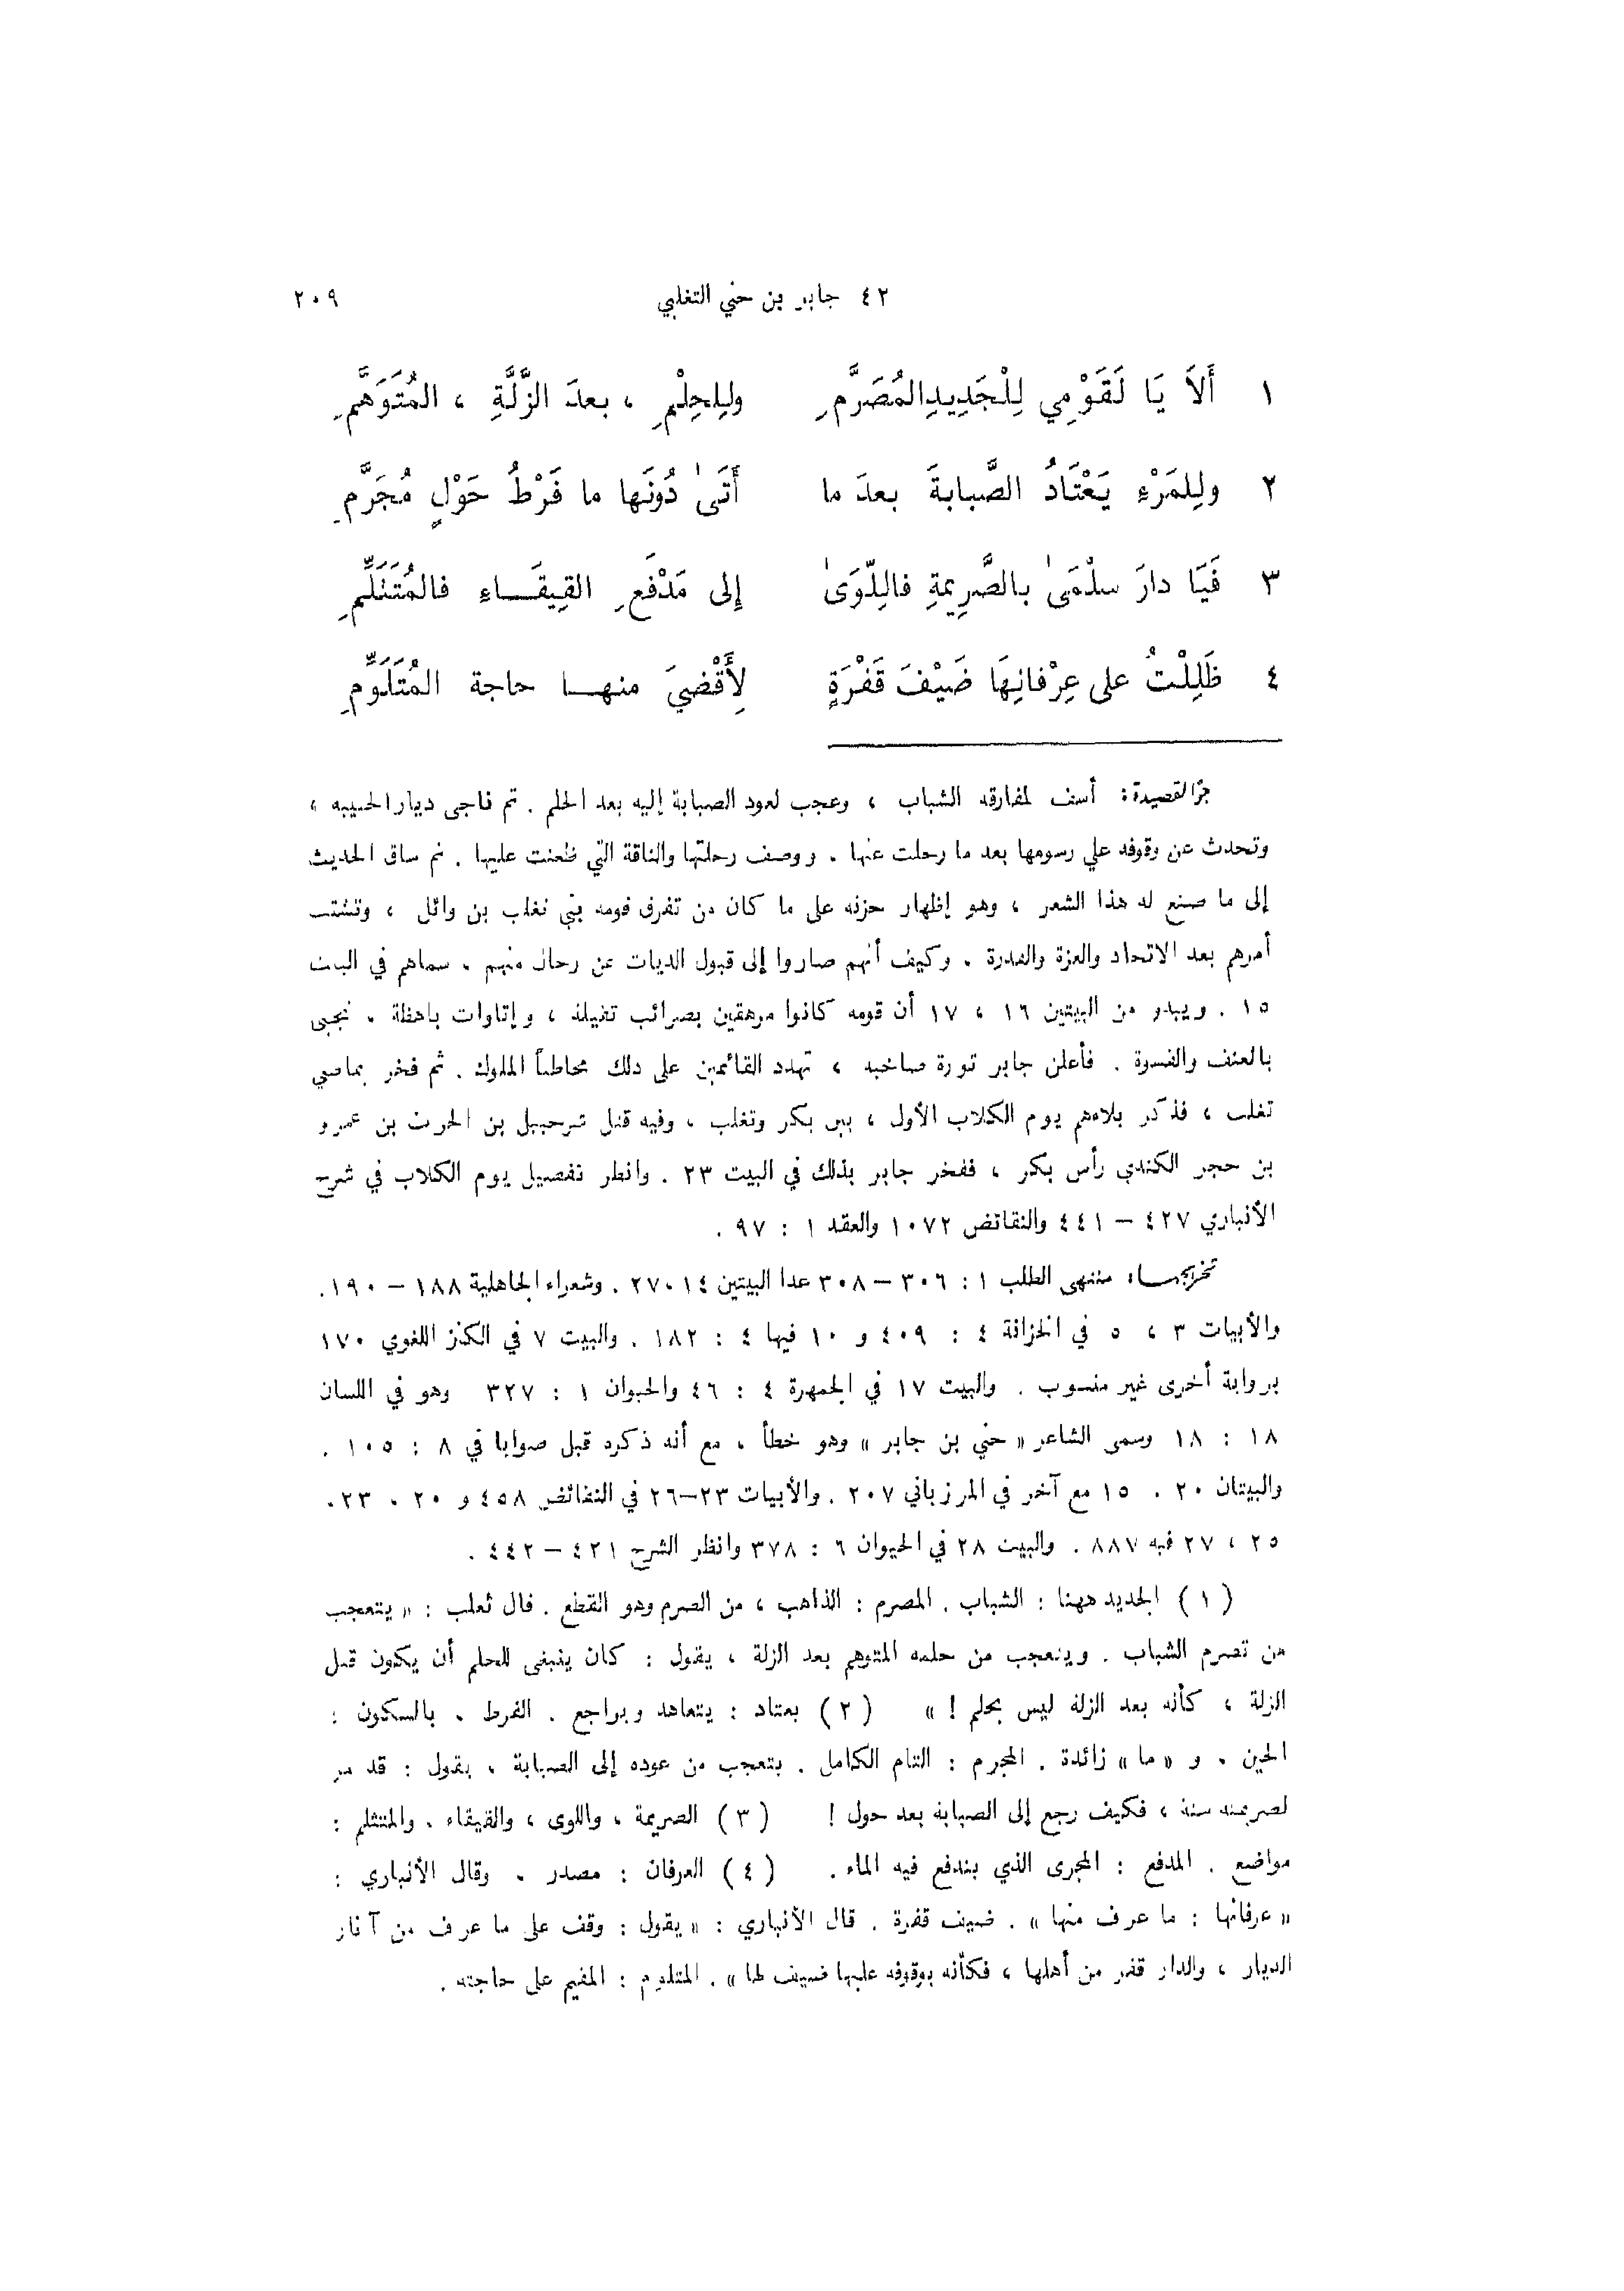 ٤٢ جابر بن حني التغلبي ٢٠٩
١ أَلاَ يَا لَقَوْمِي لِلْجَدِيدِ المُصَرَّمِ وللِحِلْمِ ، بعدَ الزَّلَّةِ ، المُتَوَهَّمِ
٢ وللِمَرْءِ يَعْتَادُ الصَّبابةَ بعدَ ما أَتَىٰ دُونَها ما فَرْطُ حَوْلٍ مُجَرَّمِ
٣ فَيَا دارَ سلْمَىٰ بالصَّرِيمةِ فاللِّوَىٰ إِلى مَدْفَعِ القِيقَاءِ فالمُتَثَلَّمِ
٤ ظَلِلْتُ على عِرْفانِهَا ضَيْفَ قَفْرَةٍ لِأَقْضِيَ منها حاجة المُتَلَوِّمِ
جوّ القصيدة : أسف لمفارقه الشباب ، وعجب لعود الصبابة إليه بعد الحلم . ثم ناجى ديار الحبيبه ،
وتحدث عن وقوفه علي رسومها بعد ما رحلت عنها . ووصف رحلتها والناقة التي ظعنت عليها . ثم ساق الحديث
إلى ما صنع له هذا الشعر ، وهو إظهار حزنه على ما كان من تفرق قومه بني تغلب بن وائل ، وتشتت
أمرهم بعد الاتحاد والعزة والقدرة . وكيف أنهم صاروا إلى قبول الديات عن رجال منهم ، سماهم في البيت
١٥ . ويبدو من البيتين ١٦ ، ١٧ أن قومه كانوا مرهقين بضرائب ثقيلة ، وإتاوات باهظة ، تجبى
بالعنف والقسوة . فأعلن جابر ثورة صاخبة ، تهدد القائمين على ذلك مخاطباً الملوك . ثم فخر بماضي
تغلب ، فذكر بلاءهم يوم الكلاب الأول ، بين بكر وتغلب ، وفيه قتل شرحبيل بن الحرث بن عمرو
بن حجر الكندي رأس بكر ، ففخر جابر بذلك في البيت ٢٣ . وانظر تفصيل يوم الكلاب في شرح
الأنباري ٤٢٧ – ٤٤١ والنقائض ١٠٧٢ والعقد ١ : ٩٧ .
تخريجها : منتهى الطلب ١ : ٣٠٦ – ٣٠٨ عدا البيتين ١٤ ، ٢٧ . وشعراء الجاهلية ١٨٨ – ١٩٠ .
والأبيات ٣ ، ٥ في الخزانة ٤ : ٤٠٩ و ١٠ فيها ٤ : ١٨٢ . والبيت ٧ في الكنز اللغوي ١٧٠
برواية أخرى غير منسوب . والبيت ١٧ في الجمهرة ٤ : ٤٦ والحيوان ١ : ٣٢٧ وهو في اللسان
١٨ : ١٨ وسمى الشاعر « حني بن جابر » وهو خطأ ، مع أنه ذكره قبل صوابا في ٨ : ١٠٥ .
والبيتان ٢٠ ، ١٥ مع آخر في المرزباني ٢٠٧ . والأبيات ٢٣–٢٦ في النقائض ٤٥٨ و ٢٠ ، ٢٣ ،
٢٥ ، ٢٧ فيه ٨٨٧ . والبيت ٢٨ في الحيوان ٦ : ٣٧٨ وانظر الشرح ٤٢١ – ٤٤٢ .
( ١ ) الجديد ههنا : الشباب . المصرم : الذاهب ، من الصرم وهو القطع . قال ثعلب : « يتعجب
من تصرم الشباب . ويتعجب من حلمه المتوهم بعد الزلة ، يقول : كان ينبغي للحلم أن يكون قبل
الزلة ، كأنه بعد الزلة ليس بحلم ! » ( ٢ ) يعتاد : يتعاهد ويراجع . الفرط ، بالسكون :
الحين . و « ما » زائدة . المجرم : التام الكامل . يتعجب من عوده إلى الصبابة ، يقول : قد مر
لصريمته سنة ، فكيف رجع إلى الصبابة بعد حول ! ( ٣ ) الصريمة ، واللوى ، والقيقاء ، والمتثلم :
مواضع . المدفع : المجرى الذي يندفع فيه الماء . ( ٤ ) العرفان : مصدر . وقال الأنباري :
« عرفانها : ما عرف منها » . ضيف قفرة . قال الأنباري : « يقول : وقف على ما عرف من آثار
الديار ، والدار قفر من أهلها ، فكأنه بوقوفه عليها ضيف لها » . المتلوم : المقيم على حاجته .